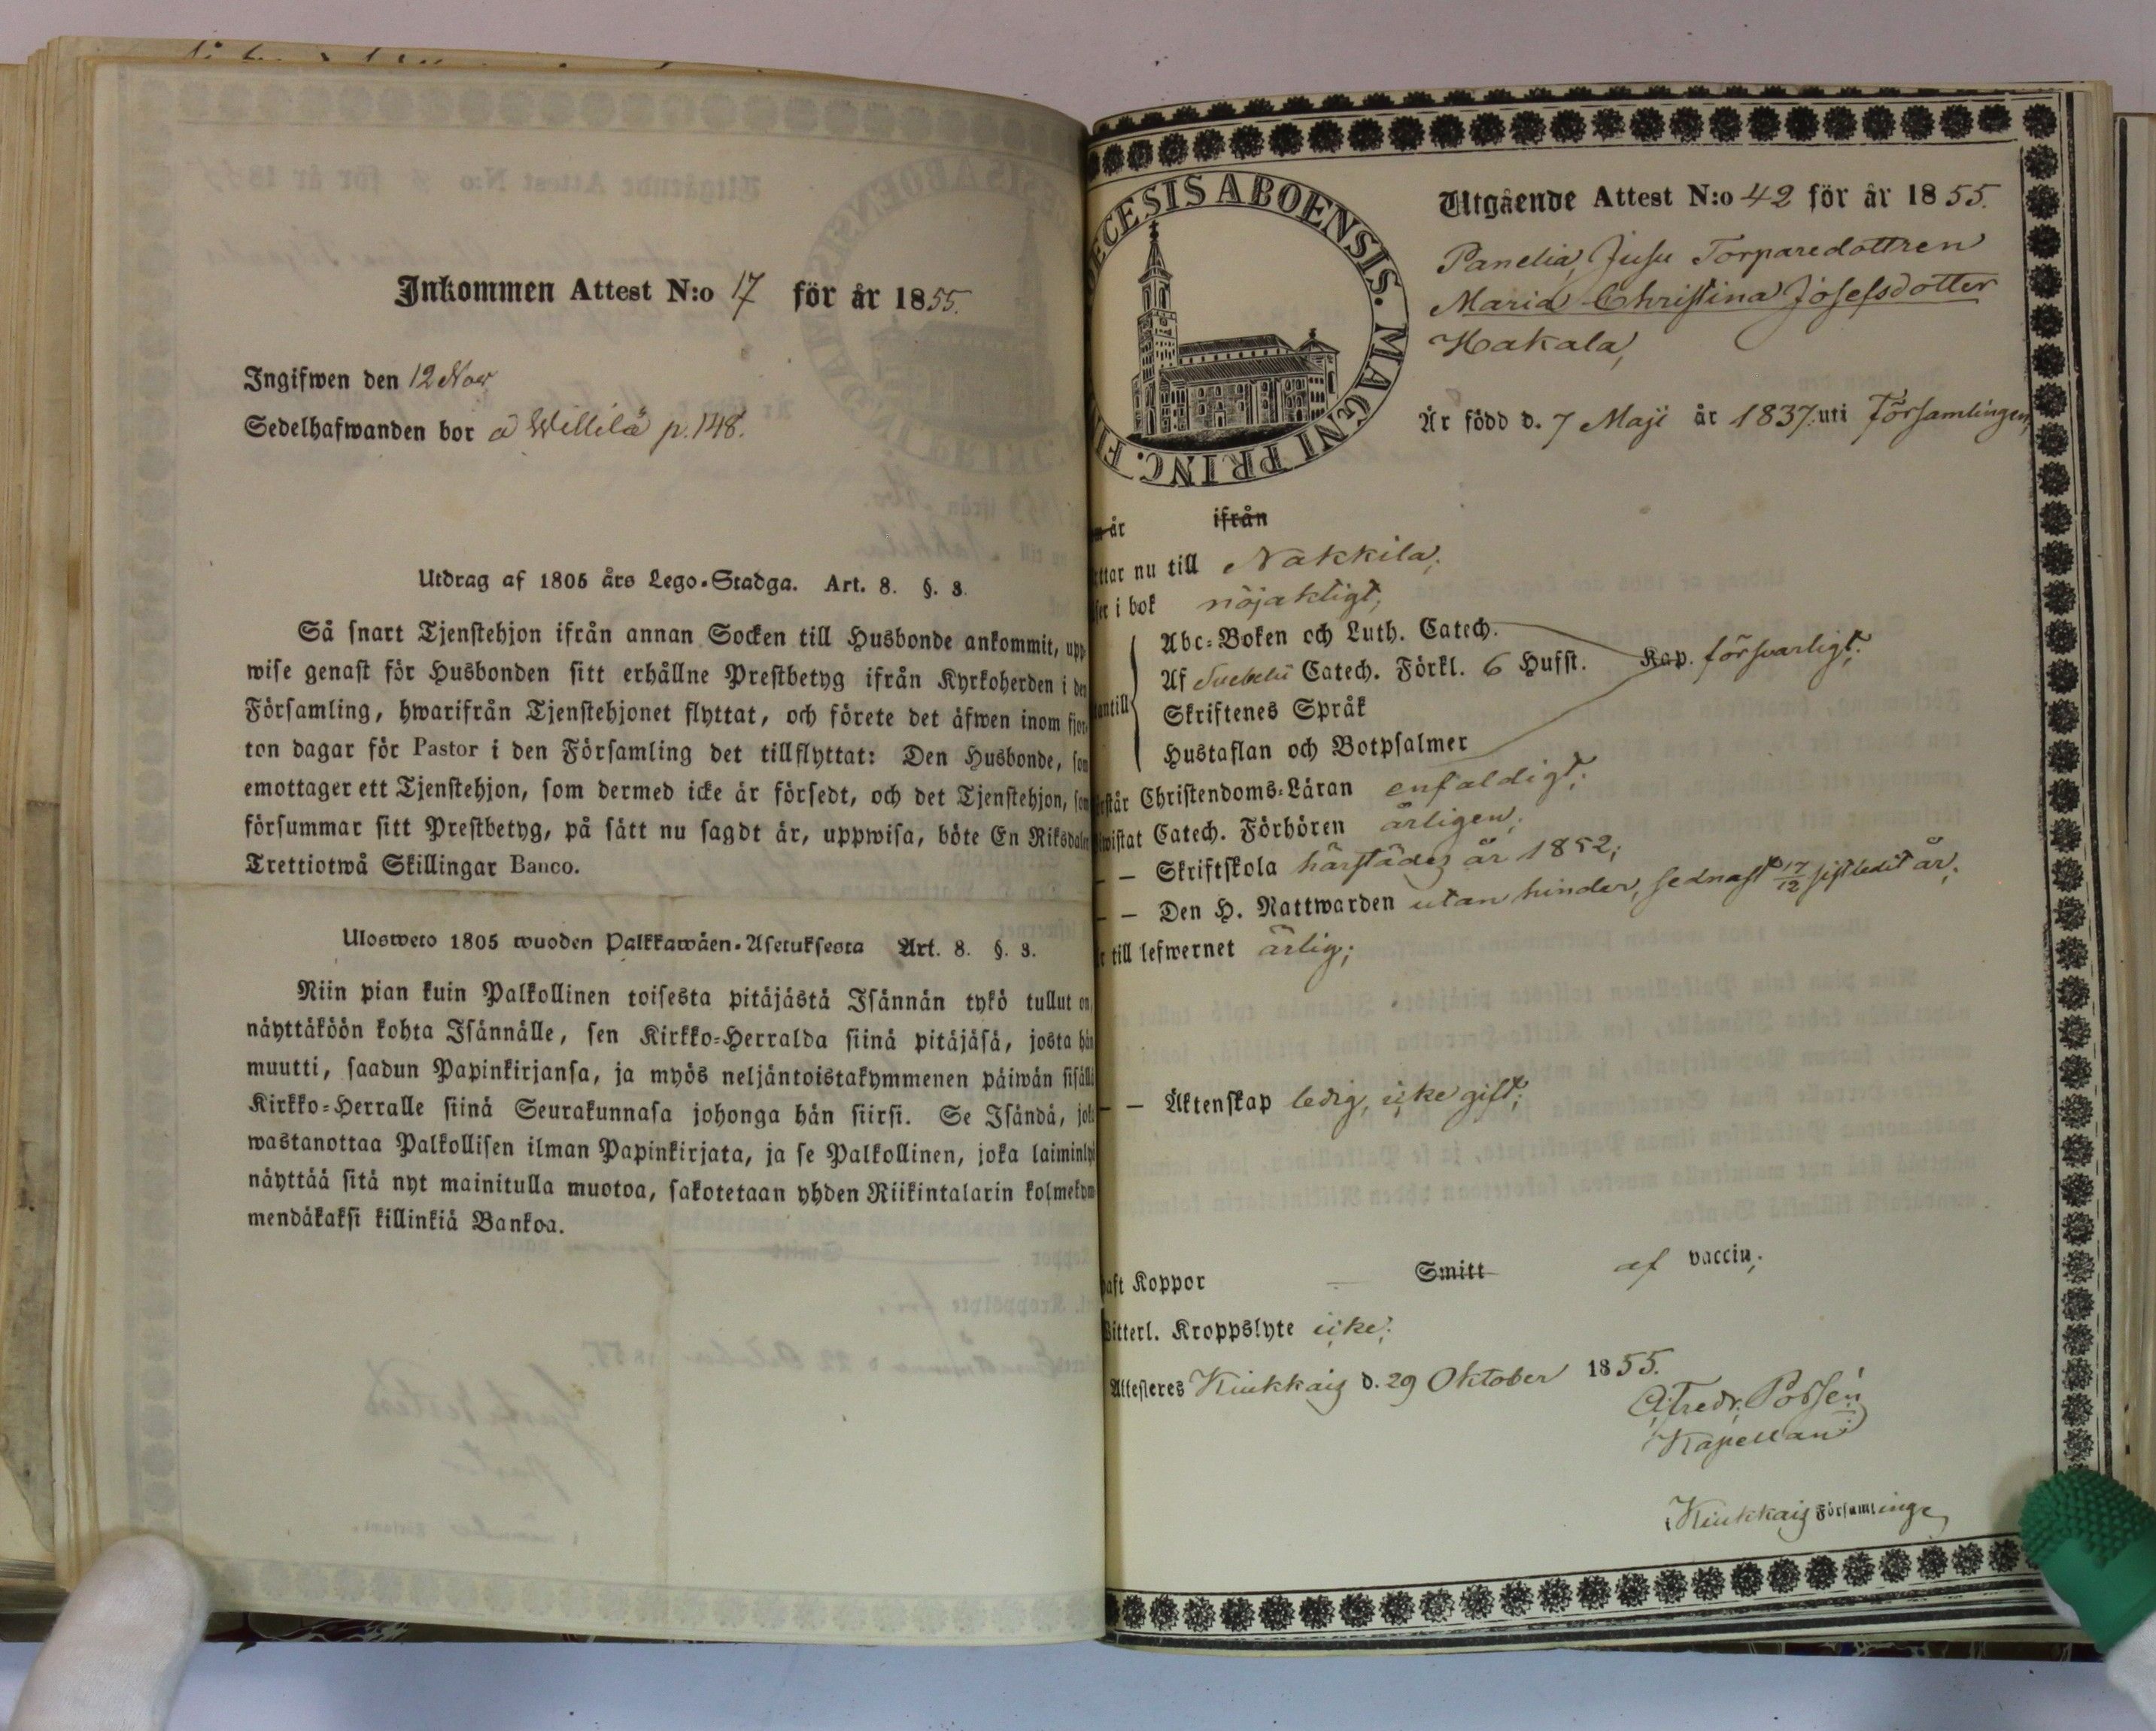 Inkommen Attest N:o 17 för år 1855.
Ingifwen den 12 Nov
Sedelhafwanden bor å Willilä p. 148.
Utdrag af 1805 års Lego-Stadga. Art. 8. §. 3.
Så snart Tjenstehjon ifrån annan Socken till Husbonde ankommit, upp-
wise genast för Husbonden sitt erhållne Prestbetyg ifrån Kyrkoherden i den
Församling, hwarifrån Tjenstehjonet flyttat, och förete det äfwen inom fjor-
ton dagar för Pastor i den Församling det tillflyttat: Den Husbonde, som
emottager ett Tjenstehjon, som dermed icke är försedt, och det Tjenstehjon, som
försummar sitt Prestbetyg, på sätt nu sagdt är, uppwisa, böte En Riksdaler
Trettiotwå Skillingar Banco.
Ulosweto 1805 wuoden Palkkawäen-Asetuksesta Art. 8. §. 3.
Niin pian kuin Palkollinen toisesta pitäjästä Isännän tykö tullut on,
näyttäköön kohta Isännälle, sen Kirkko-Herralda siinä pitäjäsä, josta hän
muutti, saadun Papinkirjansa, ja myös neljäntoistakymmenen päiwän sisällä
Kirkko-Herralle siinä Seurakunnasa johonga hän siirsi. Se Isändä, joka
wastanottaa Palkollisen ilman Papinkirjata, ja se Palkollinen, joka laiminlyö
näyttää sitä nyt mainitulla muotoa, sakotetaan yhden Riikintalarin kolmekym-
mendäkaksi killinkiä Bankoa.
DIOECESIS ABOENSIS. MAGNI PRINC. FI
Utgående Attest N:o 42 för år 1855.
Panelia, Jusu Torparedottren
Maria Christina Josefsdotter
Hakala,
Är född d. 7 Maji år 1837. uti Församlingen,
år ifrån
ttar nu till Nakkila;
ser i bok nöjaktigt;
Abc-Boken och Luth. Catech.
Af Svebelii Catech. Förkl. 6 Hufst. Kap. försvarligt;
untill
Skriftenes Språk
Hustaflan och Botpsalmer
rstår Christendoms-Läran enfaldigt;
wistat Catech. Förhören årligen;
— — Skriftskola härstädes år 1852;
— — Den H. Nattwarden utan hinder, sednast 17/12 sistledit år;
r till lefwernet ärlig;
— — Äktenskap ledig, icke gift;
haft Koppor — Smitt af vaccin;
Witterl. Kroppslyte icke;
Attesteres Kiukkais d. 29 Oktober 1855.
Kapellan i
Kiukkais Församlinge